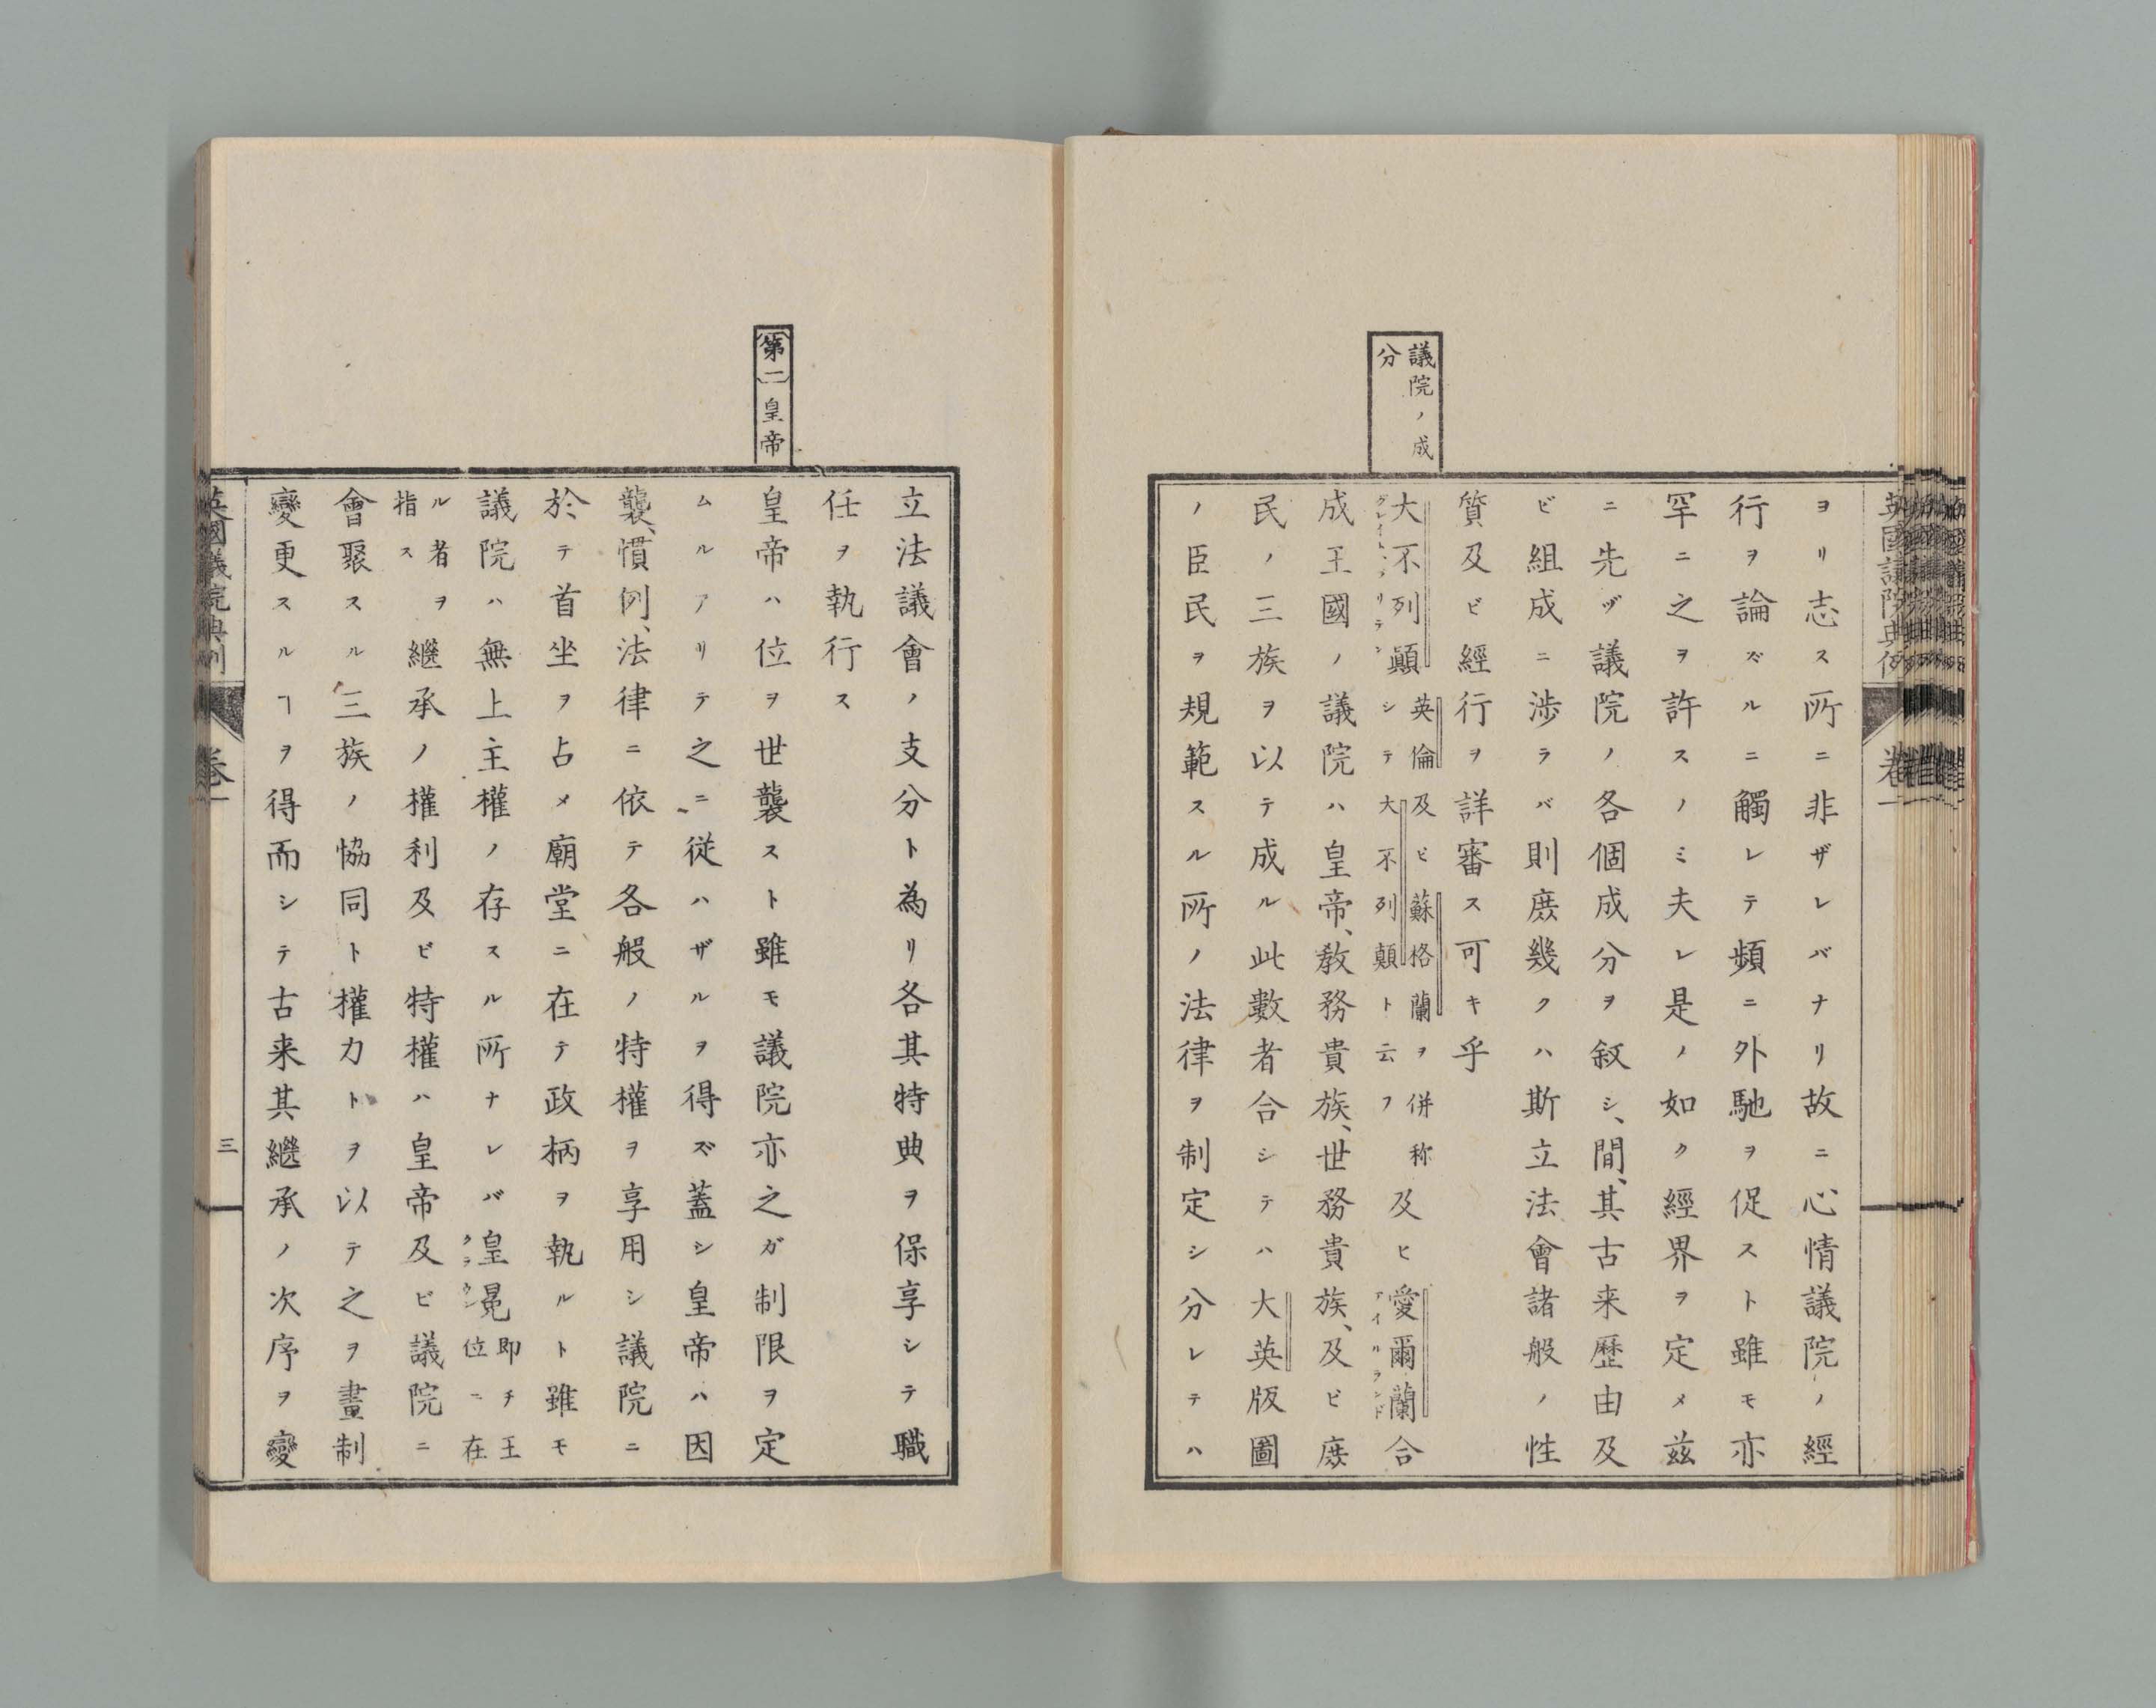 英國議院典例
卷一
ヨリ志ス所ニ非ザレバナリ故ニ心情議院ノ經
行ヲ論ズルニ觸レテ頻ニ外馳ヲ促スト雖モ亦
罕ニ之ヲ許スノミ夫レ是ノ如ク經界ヲ定メ茲
ニ先ヅ議院ノ各個成分ヲ叙シ、間、其古来歴由及
ビ組成ニ渉ラバ則庶幾クハ斯立法會諸般ノ性
質及ビ經行ヲ詳審ス可キ乎
議院ノ成
分
大不列顛
グレイト、ブリテン
英倫及ビ蘇格蘭ヲ併称
シテ大不列顛ト云フ
及ヒ愛爾蘭合
アイルランド
成王國ノ議院ハ皇帝、教務貴族、世務貴族、及ビ庶
民ノ三族ヲ以テ成ル此數者合シテハ大英版圖
ノ臣民ヲ規範スル所ノ法律ヲ制定シ分レテハ
立法議會ノ支分ト為リ各其特典ヲ保享シテ職
任ヲ執行ス
(第二)皇帝
皇帝ハ位ヲ世襲スト雖モ議院亦之ガ制限ヲ定
ムルアリテ之ニ従ハザルヲ得ズ蓋シ皇帝ハ因
襲、慣例、法律ニ依テ各般ノ特權ヲ享用シ議院ニ
於テ首坐ヲ占メ廟堂ニ在テ政柄ヲ執ルト雖モ
議院ハ無上主權ノ存スル所ナレバ皇冕
クラウン
即チ王
位ニ在
ル者ヲ
指ス
継承ノ權利及ビ特權ハ皇帝及ビ議院ニ
會聚スル三族ノ協同ト權力トヲ以テ之ヲ畫制
變更スルヿヲ得而シテ古来其継承ノ次序ヲ變
英國議院典例
卷一
三